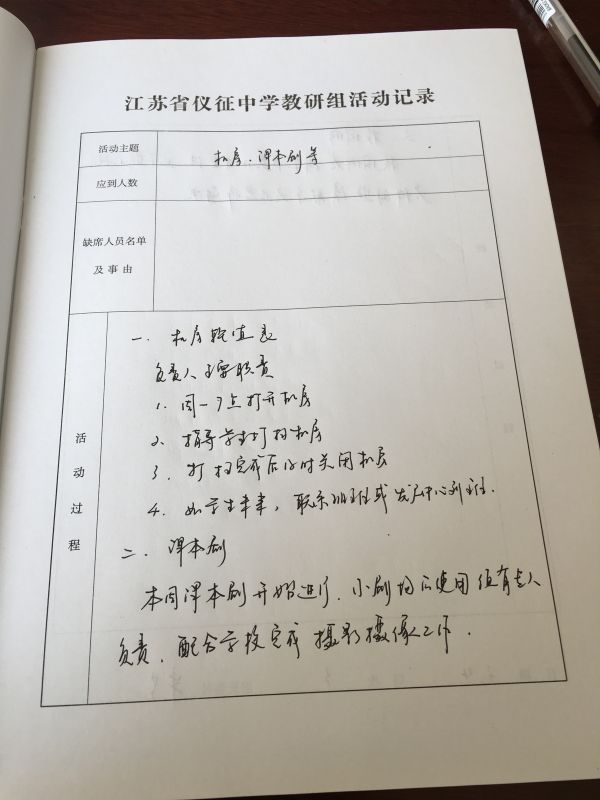 江苏省仪征中学教研组活动记录
活动主题
机房、课本剧等
应到人数
缺席人员名单
及事由
活动过程
一、机房轮值表
负责人主要职责
1. 周一7点打开机房
2. 指导学生打扫机房
3. 打扫完成后及时关闭机房
4. 如学生未来,联系班主任或发展中心刘主任.
二、课本剧
本周课本剧开始进行,小剧场的使用但有专人
负责,配合学校完成摄影摄像工作.